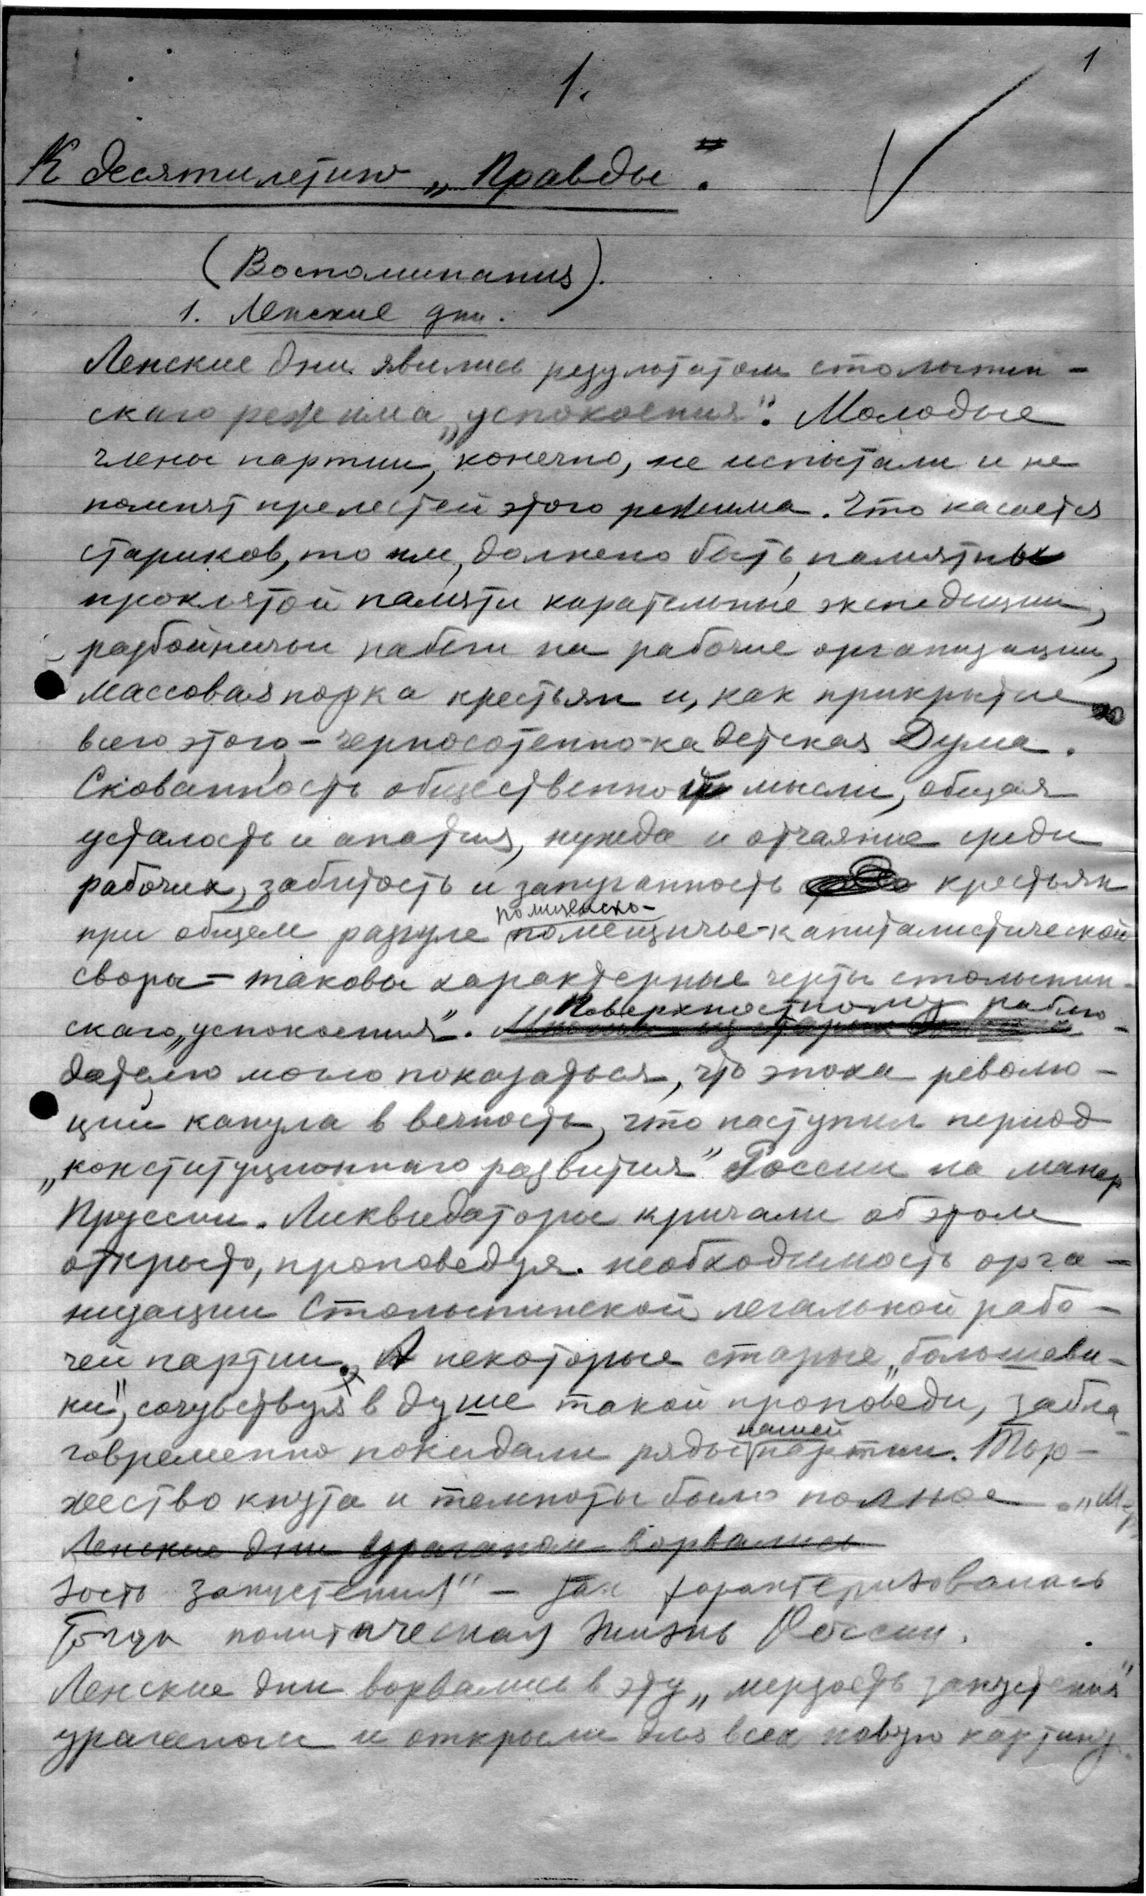 1
1.
К десятилетию „Правды".
(Воспоминания).
1. Ленские дни.
Ленские дни явились результатом столыпин-
скаго режима „успокоения". Молодые
члены партии, конечно, не испытали и не
помнят прелестей этого режима. Что касается
стариков, то им, должно быть, памятны
проклятой памяти карательные экспедиции,
разбойничьи набеги на рабочие организации,
массовая порка крестьян и, как прикрытие
всего этого, – черносотенно-кадетская Дума.
Скованность общественной мысли, общая
усталость и апатия, нужда и отчаяние среди
рабочих, забитость и запуганность крестьян
полицейско-
при общем разгуле помещичье-капиталистической
своры – таковы характерные черты столыпин-
скаго „успокоения". Поверхностному наблю-
дателю могло показаться, что эпоха револю-
ций канула в вечность, что наступил период
„конституционнаго развития" России на манер
Пруссии. Ликвидаторы кричали об этом
открыто, проповедуя необходимость орга-
низации столыпинской легальной рабо-
чей партии. А некоторые старые „большеви-
ки", сочувствуя в душе такой проповеди, забла-
нашей
говременно покидали ряды партии. Тор-
жество кнута и темноты было полное. „Мер-
Ленские дни ураганом ворвались
зость запустения" – так характеризовалась
тогда политическая жизнь России.
Ленские дни ворвались в эту „мерзость запустения"
ураганом и открыли для всех новую картину.